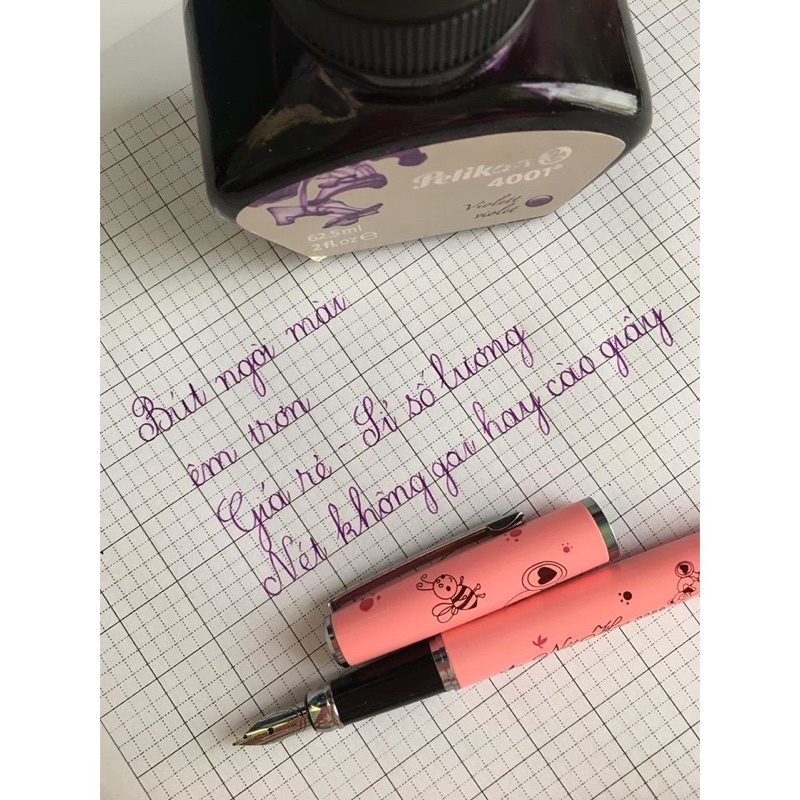 Pelikan
4001®
Violett
violet
62.5ml
2 fl.oz℮
Bút ngọi mài
êm trơn
Giá rẻ - Sỉ số lương
Nét không gai hay cào giấy